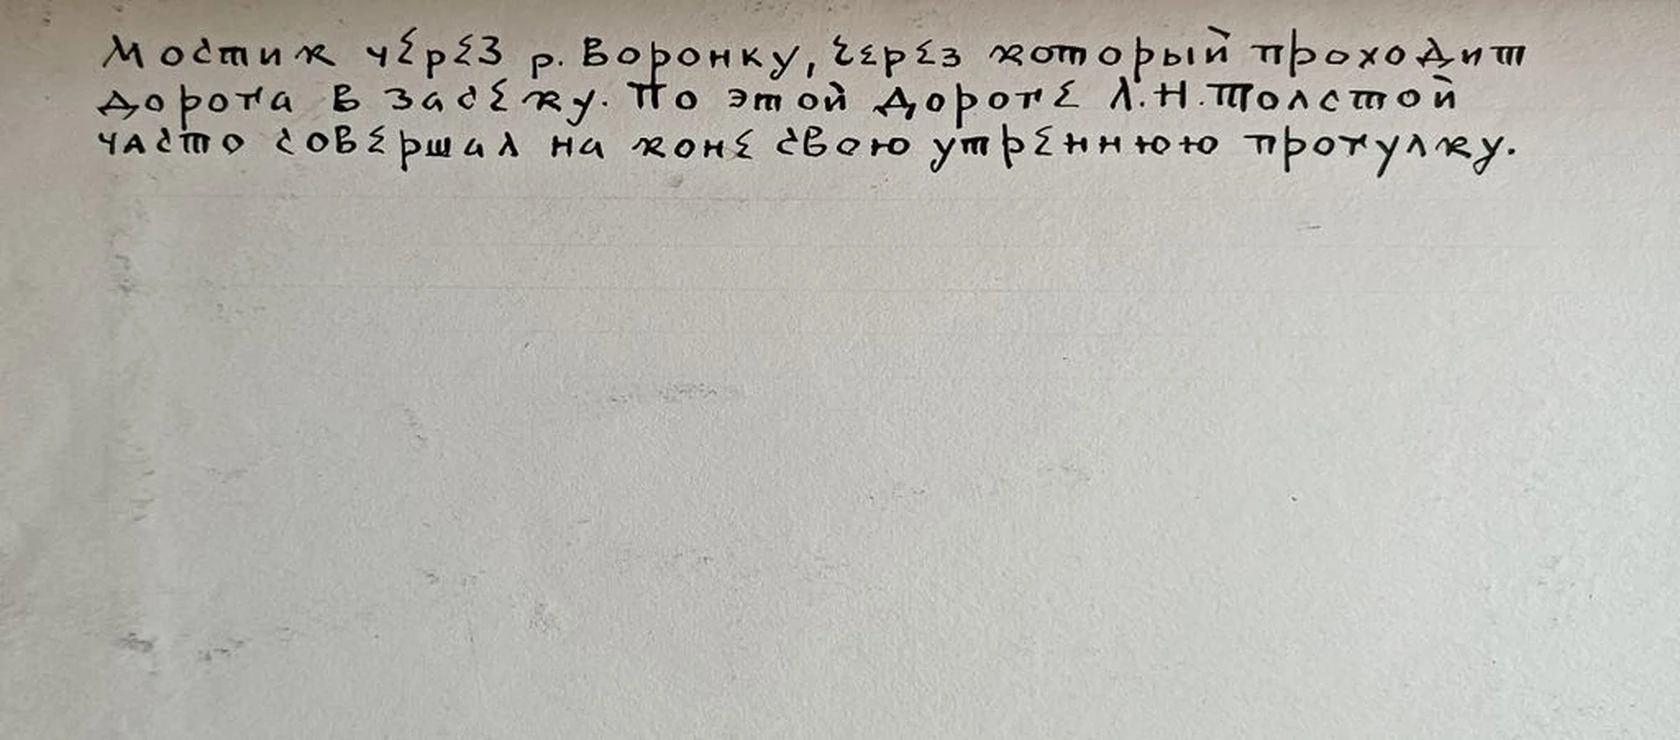 Мостик через р. Воронку, через который проходит
дорога в засеку. По этой дороге Л.Н.Толстой
часто совершал на коне свою утреннюю прогулку.